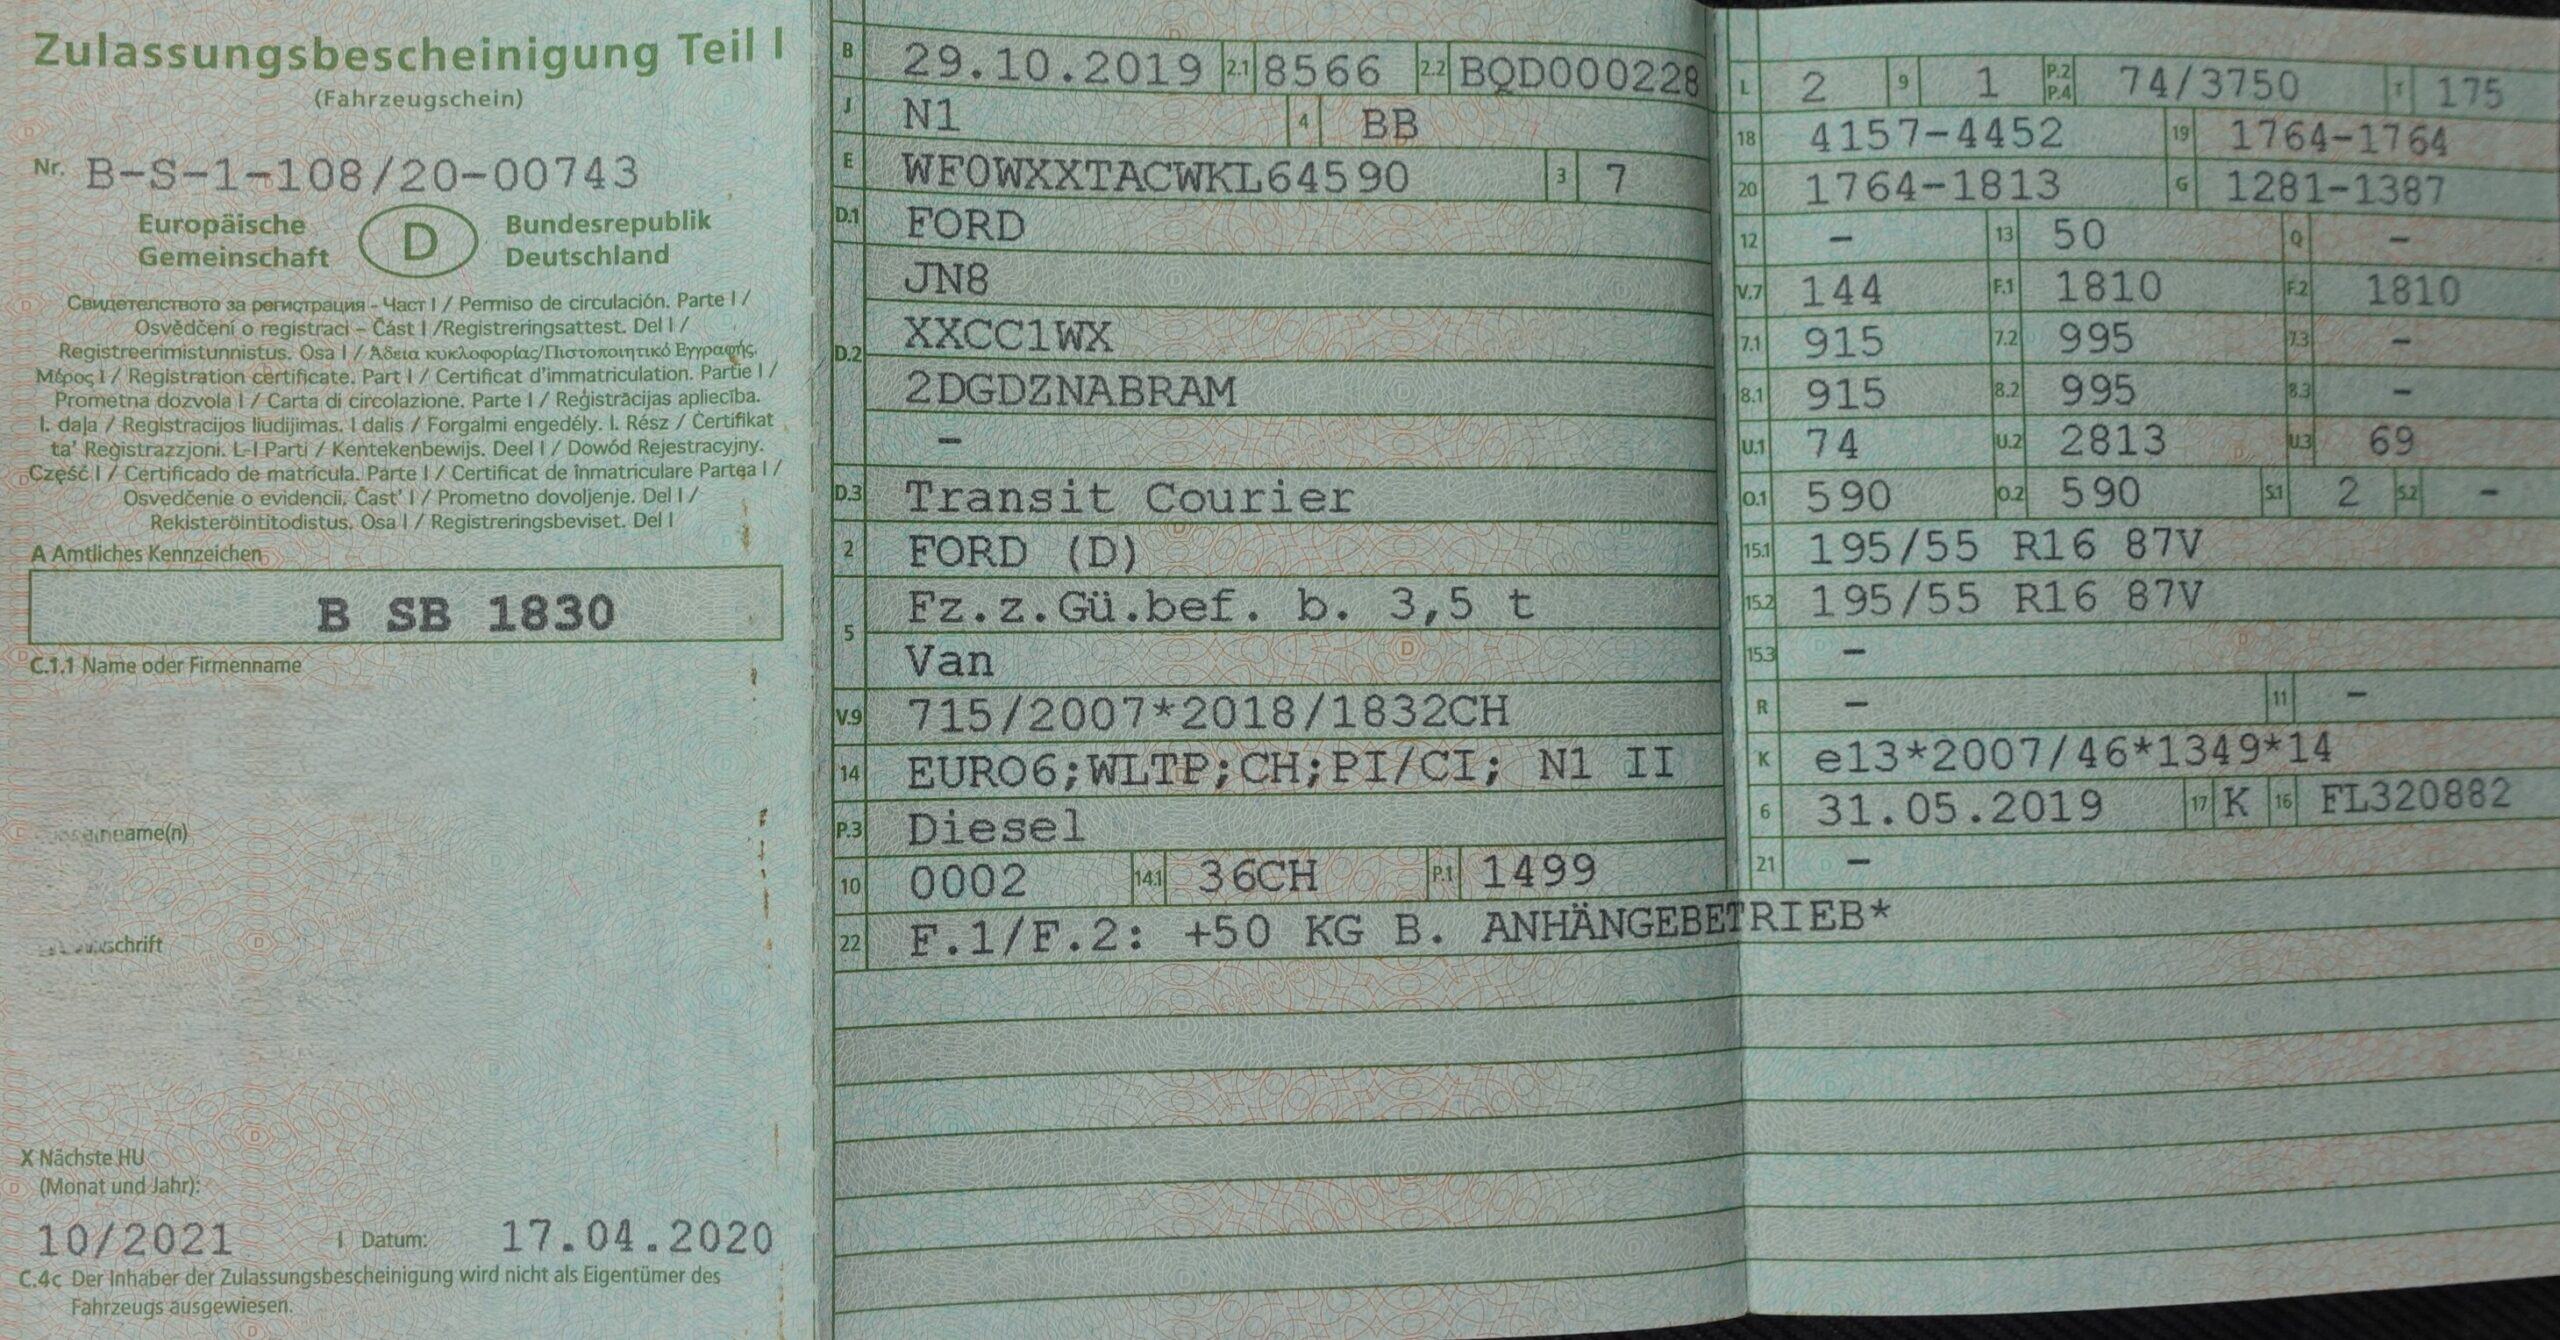 Zulassungsbescheinigung Teil I
(Fahrzeugschein)
Nr. B-S-1-108/20-00743
Europäische Gemeinschaft
D
Bundesrepublik Deutschland
Свидетелството за регистрация - Част I / Permiso de circulación. Parte I /
Osvědčení o registraci – Část I /Registreringsattest. Del I /
Registreerimistunnistus. Osa I / Άδεια κυκλοφορίας/Πιστοποιητικό Εγγραφής.
Μέρος I / Registration certificate. Part I / Certificat d'immatriculation. Partie I /
Prometna dozvola I / Carta di circolazione. Parte I / Reģistrācijas apliecība.
I. daļa / Registracijos liudijimas. I dalis / Forgalmi engedély. I. Rész / Ċertifikat
ta' Reġistrazzjoni. L-I Parti / Kentekenbewijs. Deel I / Dowód Rejestracyjny.
Część I / Certificado de matrícula. Parte I / Certificat de înmatriculare Partea I /
Osvedčenie o evidencii. Časť I / Prometno dovoljenje. Del I /
Rekisteröintitodistus. Osa I / Registreringsbeviset. Del I
A Amtliches Kennzeichen
B SB 1830
C.1.1 Name oder Firmenname
name(n)
schrift
X Nächste HU
(Monat und Jahr):
10/2021 I Datum: 17.04.2020
C.4c Der Inhaber der Zulassungsbescheinigung wird nicht als Eigentümer des
Fahrzeugs ausgewiesen.
B 29.10.2019 2.1 8566 2.2 BQD000228
J N1 4 BB
E WF0WXXTACWKL64590 3 7
D.1 FORD
D.2 JN8
XXCC1WX
2DGDZNABRAM
-
D.3 Transit Courier
2 FORD (D)
5 Fz.z.Gü.bef. b. 3,5 t
Van
V.9 715/2007*2018/1832CH
14 EURO6;WLTP;CH;PI/CI; N1 II
P.3 Diesel
10 0002 14.1 36CH P.1 1499
22 F.1/F.2: +50 KG B. ANHÄNGEBETRIEB*
L 2 9 1 P.2 P.4 74/3750 T 175
18 4157-4452 19 1764-1764
20 1764-1813 G 1281-1387
12 - 13 50 Q -
V.7 144 F.1 1810 F.2 1810
7.1 915 7.2 995 7.3 -
8.1 915 8.2 995 8.3 -
U.1 74 U.2 2813 U.3 69
O.1 590 O.2 590 S.1 2 S.2 -
15.1 195/55 R16 87V
15.2 195/55 R16 87V
15.3 -
R - 11 -
K e13*2007/46*1349*14
6 31.05.2019 17 K 16 FL320882
21 -